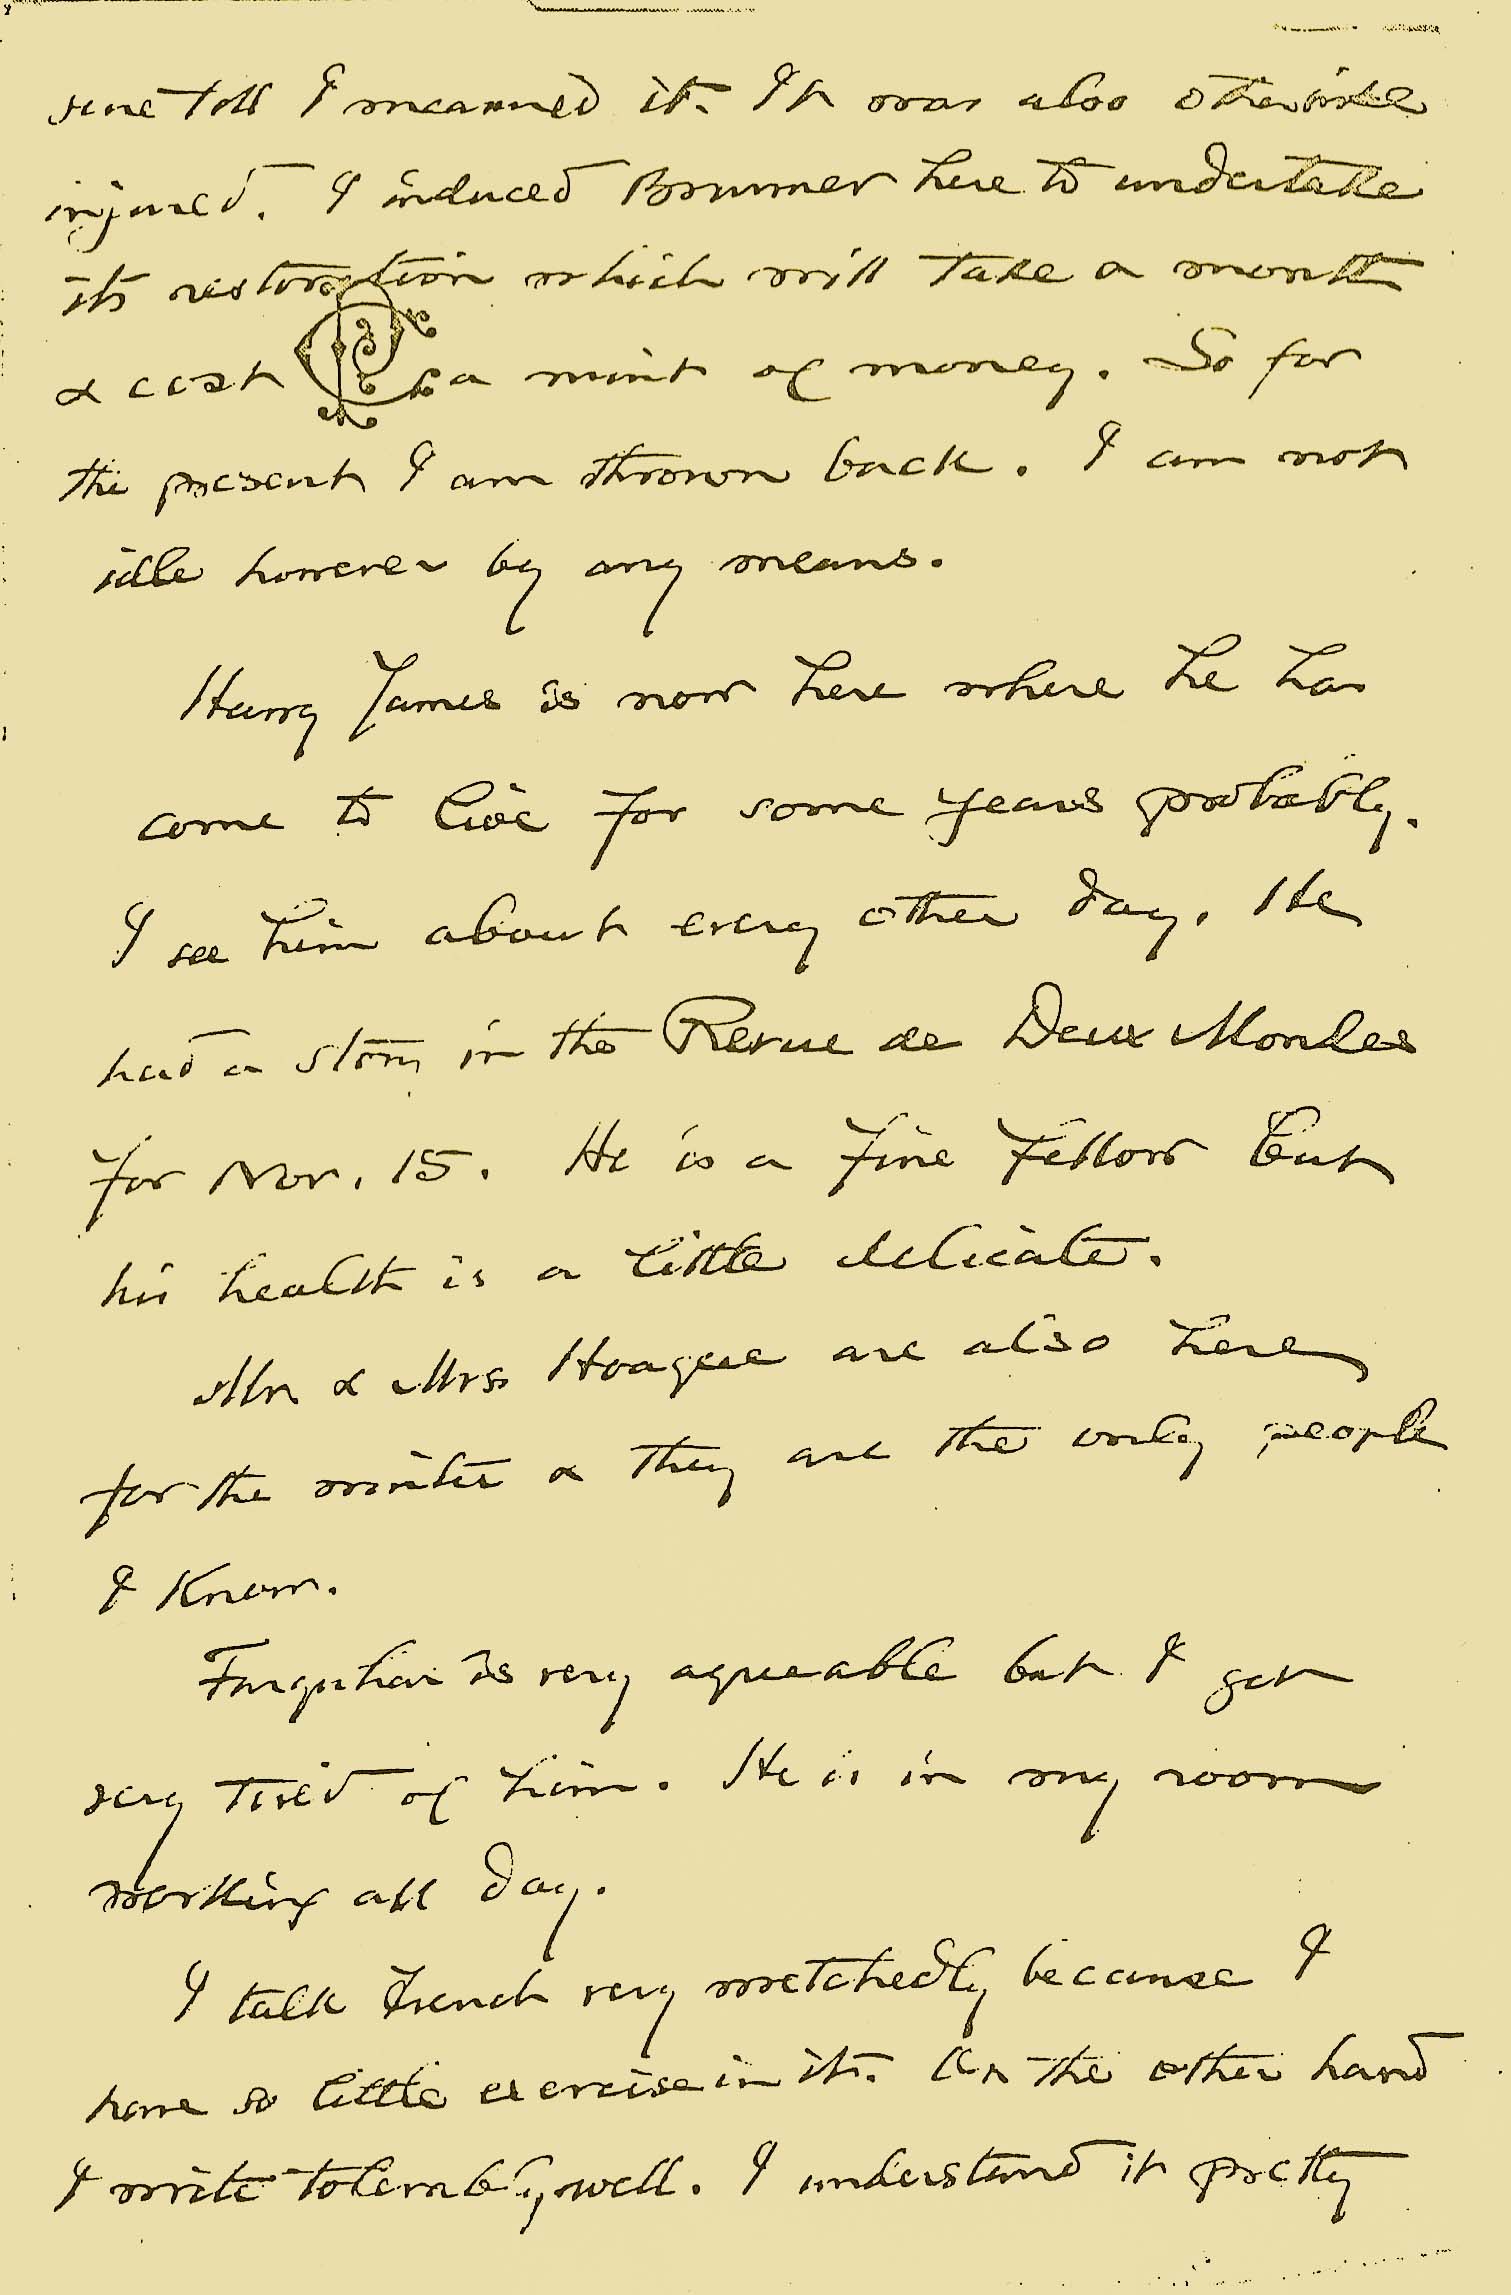 sene till I mearned it. It was also otherwise
injured. I induced Brunner here to undertake
its restoration which will take a month
& cost a mint of money. So for
the present I am thrown back. I am not
idle however by any means.
Harry James is now here where he has
come to live for some years probably.
I see him about every other day. He
had a story in the Revue de Deux Mondes
for Nov. 15. He is a fine fellow but
his health is a little delicate.
Mr & Mrs Hoague are also here
for the winter & they are the only people
I know.
Farquhar is very agreeable but I get
very tired of him. He is in my room
working all day.
I talk French very wretchedly because I
have so little exercise in it. On the other hand
I write tolerably well. I understand it pretty